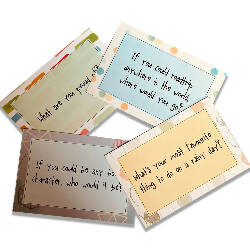 what are you proud
If you could roadtrip
anywhere in the world,
where would you go?
If you could be any
character, who would it be?
What's your most favourite
thing to do on a rainy day?